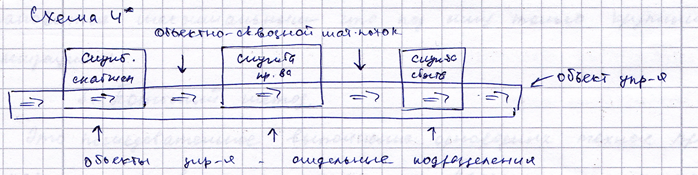 Схема 4*
Объектно-сквозной мат. поток
служб. снабжен
служба пр-ва
служба сбыта
объект упр-я
объекты упр-я - отдельные подразделения